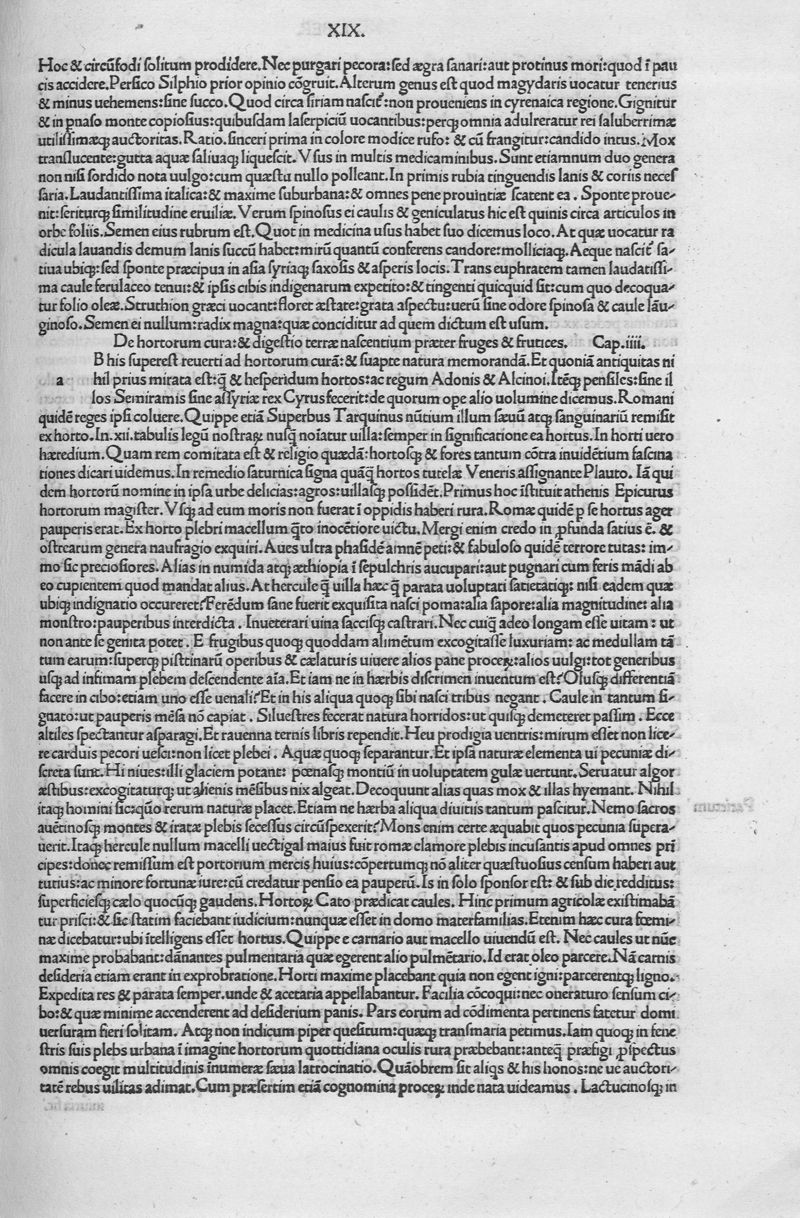 XIX.
Hoc & circũfodi solitum prodidere. Nec purgari pecora: sed ægra sanari: aut protinus mori: quod ĩ pau
cis accidere. Persico Silphio prior opinio cõgruit. Alterum genus est quod magydaris uocatur tenerius
& minus uehemens: sine succo. Quod circa siriam nascit᷒: non proueniens in cyrenaica regione. Gignitur
& in pnaso monte copiosius: quibusdam laserpiciũ uocantibus: perqꝫ omnia adulreratur rei saluberrimæ
utilissimæqꝫ auctoritas. Ratio. sinceri prima in colore modice rufo: & cũ frangitur: candido intus. Mox
translucente: gutta aquæ saliuaqꝫ liquescit. Vsus in multis medicaminibus. Sunt etiamnum duo genera
non nisi sordido nota uulgo: cum quæstu nullo polleant. In primis rubia tinguendis lanis & coriis neces
saria. Laudantissima italica: & maxime suburbana: & omnes pene prouintiæ scatent ea. Sponte proue-
nit: seriturqꝫ similitudine eruiliæ. Verum spinosus ei caulis & geniculatus hic est quinis circa articulos in
orbe foliis. Semen eius rubrum est. Quot in medicina usus habet suo dicemus loco. At quæ uocatur ra
dicula lauandis demum lanis succũ habet: mirũ quantũ conferens candore: molliciaqꝫ. Aeque nascit᷒ sa-
tiua ubiqꝫ: sed sponte præcipua in asia syriaqꝫ saxosis & asperis locis. Trans euphratem tamen laudatissi-
ma caule ferulaceo tenui: & ipsius cibis indigenarum expetito: & tingenti quicquid sit: cum quo decoqua-
tur folio oleæ. Struthion græci uocant: floret æstate: grata aspectu: uerũ sine odore spinosa & caule lãu-
ginoso. Semen ei nullum: radix magna: quæ conciditur ad quem dictum est usum.
De hortorum cura: & digestio terræ nascentium præter fruges & frutices. Cap. iiii.
B his superest reuerti ad hortorum curã: & suapte natura memorandã. Et quoniã antiquitas ni
a hil prius mirata est: q̃ & hesperidum hortos: ac regum Adonis & Alcinoi. Itẽqꝫ pensiles: sine il
los Semiramis sine assyriæ rex Cyrus fecerit: de quorum ope alio uolumine dicemus. Romani
quidẽ reges ipsi coluere. Quippe etiã Superbus Tarquinus nũtium illum sæuũ atqꝫ sanguinariũ remisit
ex horto. In. xii. tabulis legũ nostraꝝ nusq̃ noĩatur uilla: semper in significatione ea hortus. In horti uero
hæredium. Quam rem comitata est & religio quædã: hortosqꝫ & fores tantum cõtra inuidẽtium fascina
tiones dicari uidemus. In remedio saturnica signa quãq̃ hortos tutelæ Veneris assignante Plauto. Iã qui
dem hortorũ nomine in ipsa urbe delicias: agros: uillasqꝫ possidẽt. Primus hoc ĩstituit athenis Epicurus
hortorum magister. Vsqꝫ ad eum moris non fuerat ĩ oppidis haberi rura. Romæ quidẽ p se hortus ager
pauperis erat. Ex horto plebri macellum q̃to inocẽtiore uictu. Mergi enim credo in ꝓfunda satius ẽ. &
ostrearum genera naufragio exquiri. Aues ultra phasidẽ amnẽ peti: & fabuloso quidẽ terrore tutas: im-
mo sic preciosiores. Alias in numida atqꝫ æthiopia ĩ sepulchris aucupari: aut pugnari cum feris mãdi ab
eo cupientem quod mandat alius. At hercule q̃ uilla hæc q̃ parata uoluptati satietatiqꝫ: nisi eadem quæ
ubiqꝫ indignatio occureret? Ferẽdum sane fuerit exquisita nasci poma: alia sapore: alia magnitudine: alia
monstro: pauperibus interdicta. Inueterari uina saccisqꝫ castrari. Nec cuiq̃ adeo longam esse uitam: ut
non ante se genita potet. E frugibus quoqꝫ quoddam alimẽtum excogitasse luxuriam: ac medullam tã
tum earum: superqꝫ pistrinarũ operibus & cælaturis uiuere alios pane proceꝝ: alios uulgi: tot generibus
usqꝫ ad infimam plebem descendente aĩa. Et iam ne in hærbis discrimen inuentum est? Olusqꝫ differentiã
facere in cibo: etiam uno esse uenali? Et in his aliqua quoqꝫ sibi nasci tribus negant. Caule in tantum si-
gnato: ut pauperis mẽsa nõ capiat. Siluestres fecerat natura horridos: ut quisqꝫ demeteret passim. Ecce
altiles spectantur asparagi. Et rauenna ternis libris rependit. Heu prodigia uentris: mirum esset non lice-
re carduis pecori uesci: non licet plebei. Aquæ quoqꝫ separantur. Et ipsã naturæ elementa ui pecuniæ di-
screta sunt. Hi niues: illi glaciem potant: pœnasqꝫ montiũ in uoluptatem gulæ uertunt. Seruatur algor
æstibus: excogitaturqꝫ ut alienis mẽsibus nix algeat. Decoquunt alias quas mox & illas hyemant. Nihil
itaqꝫ homini sic: quo rerum naturæ placet. Etiam ne hærba aliqua diuitiis tantum pascitur. Nemo sacros
auẽtinosqꝫ montes & iratæ plebis secessus circũspexerit? Mons enim certe æquabit quos pecunia supera-
uerit. Itaqꝫ hercule nullum macelli uectigal maius fuit romæ clamore plebis incusantis apud omnes prĩ
cipes: donec remissum est portorium mercis huius: cõpertumqꝫ nõ aliter quæstuosius censum haberi aut
tutius: ac minore fortunæ iure: cũ credatur pensio ea pauperũ. Is in solo sponsor est: & sub die redditus:
superficiesqꝫ cælo quocũqꝫ gaudens. Hortoꝝ Cato prædicat caules. Hinc primum agricolæ existimabã
tur prisci: & sic statim faciebant iudicium: nunquæ esset in domo materfamilias. Etenim hæc cura fœmi-
næ dicebatur: ubi ĩtelligens esset hortus. Quippe e carnario aut macello uiuendũ est. Nec caules ut nũc
maxime probabant: dãnantes pulmentaria quæ egerent alio pulmẽtario. Id erat oleo parcere. Nã carnis
desideria etiam erant in exprobratione. Horti maxime placebant quia non egent igni: parcerentqꝫ ligno.
Expedita res & parata semper. unde & acetaria appellabantur. Facilia cõcoqui: nec oneratura sensum ci-
bo: & quæ minime accenderent ad desiderium panis. Pars eorum ad cõdimenta pertinens fatetur domi
uersuram fieri solitam. Atqꝫ non indicum piper quesitum: quæqꝫ transmaria petimus. Iam quoqꝫ in fene
stris suis plebs urbana ĩ imagine hortorum quottidiana oculis rura præbebant: anteq̃ præfigi ꝓspectus
omnis coegit multitudinis inumeræ sæua latrocinatio. Quãobrem sit aliqs & his honos: ne ue auctori-
tatẽ rebus uilitas adimat. Cum præsertim etiã cognomina proceꝝ inde nata uideamus. Lactucinosqꝫ in